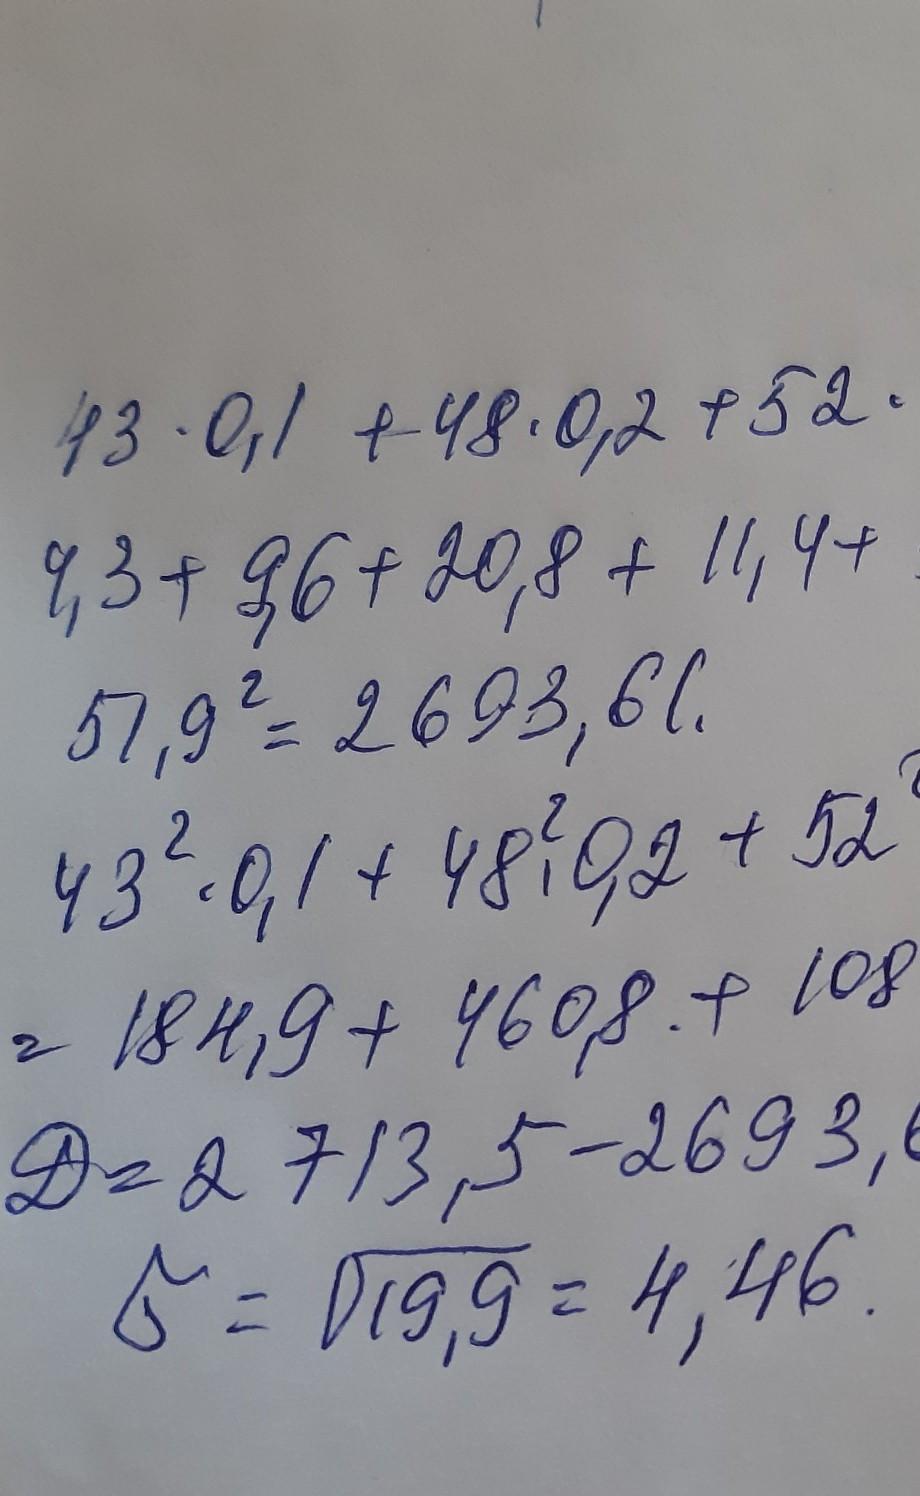 43 · 0,1 + 48 · 0,2 + 52 ·
4,3 + 9,6 + 20,8 + 11,4 +
51,9² = 2693,61.
43² · 0,1 + 48² · 0,2 + 52²
= 184,9 + 460,8 + 108
D = 2713,5 - 2693,6
σ = √19,9 = 4,46.